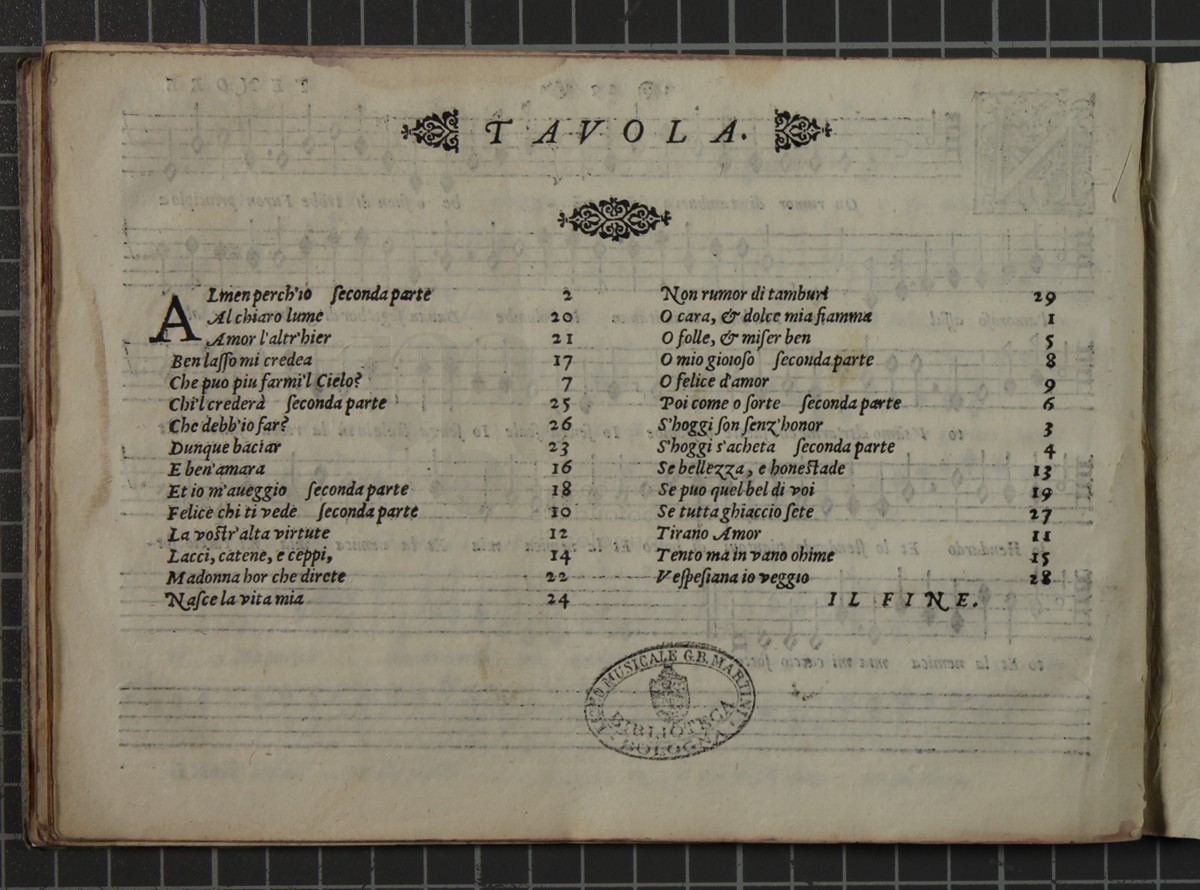 TAVOLA.
ALmen perch'io seconda parte 2
Al chiaro lume 20
Amor l'altr'hier 21
Ben lasso mi credea 17
Che puo piu farmi'l Cielo? 7
Chi'l crederà seconda parte 25
Che debb'io far? 26
Dunque baciar 23
E ben'amara 16
Et io m'aueggio seconda parte 18
Felice chi ti vede seconda parte 10
La vostr'alta virtute 12
Lacci, catene, e ceppi, 14
Madonna hor che direte 22
Nasce la vita mia 24
Non rumor di tamburi 29
O cara, & dolce mia fiamma 1
O folle, & miser ben 5
O mio gioioso seconda parte 8
O felice d'amor 9
Poi come o sorte seconda parte 6
S'hoggi son senz'honor 3
S'hoggi s'acheta seconda parte 4
Se bellezza, e honestade 13
Se puo quel bel di voi 19
Se tutta ghiaccio sete 27
Tirano Amor 11
Tento ma in vano ohime 15
Vespesiana io veggio 28
IL FINE.
LICEO MUSICALE G.B. MARTINI
BIBLIOTECA
BOLOGNA